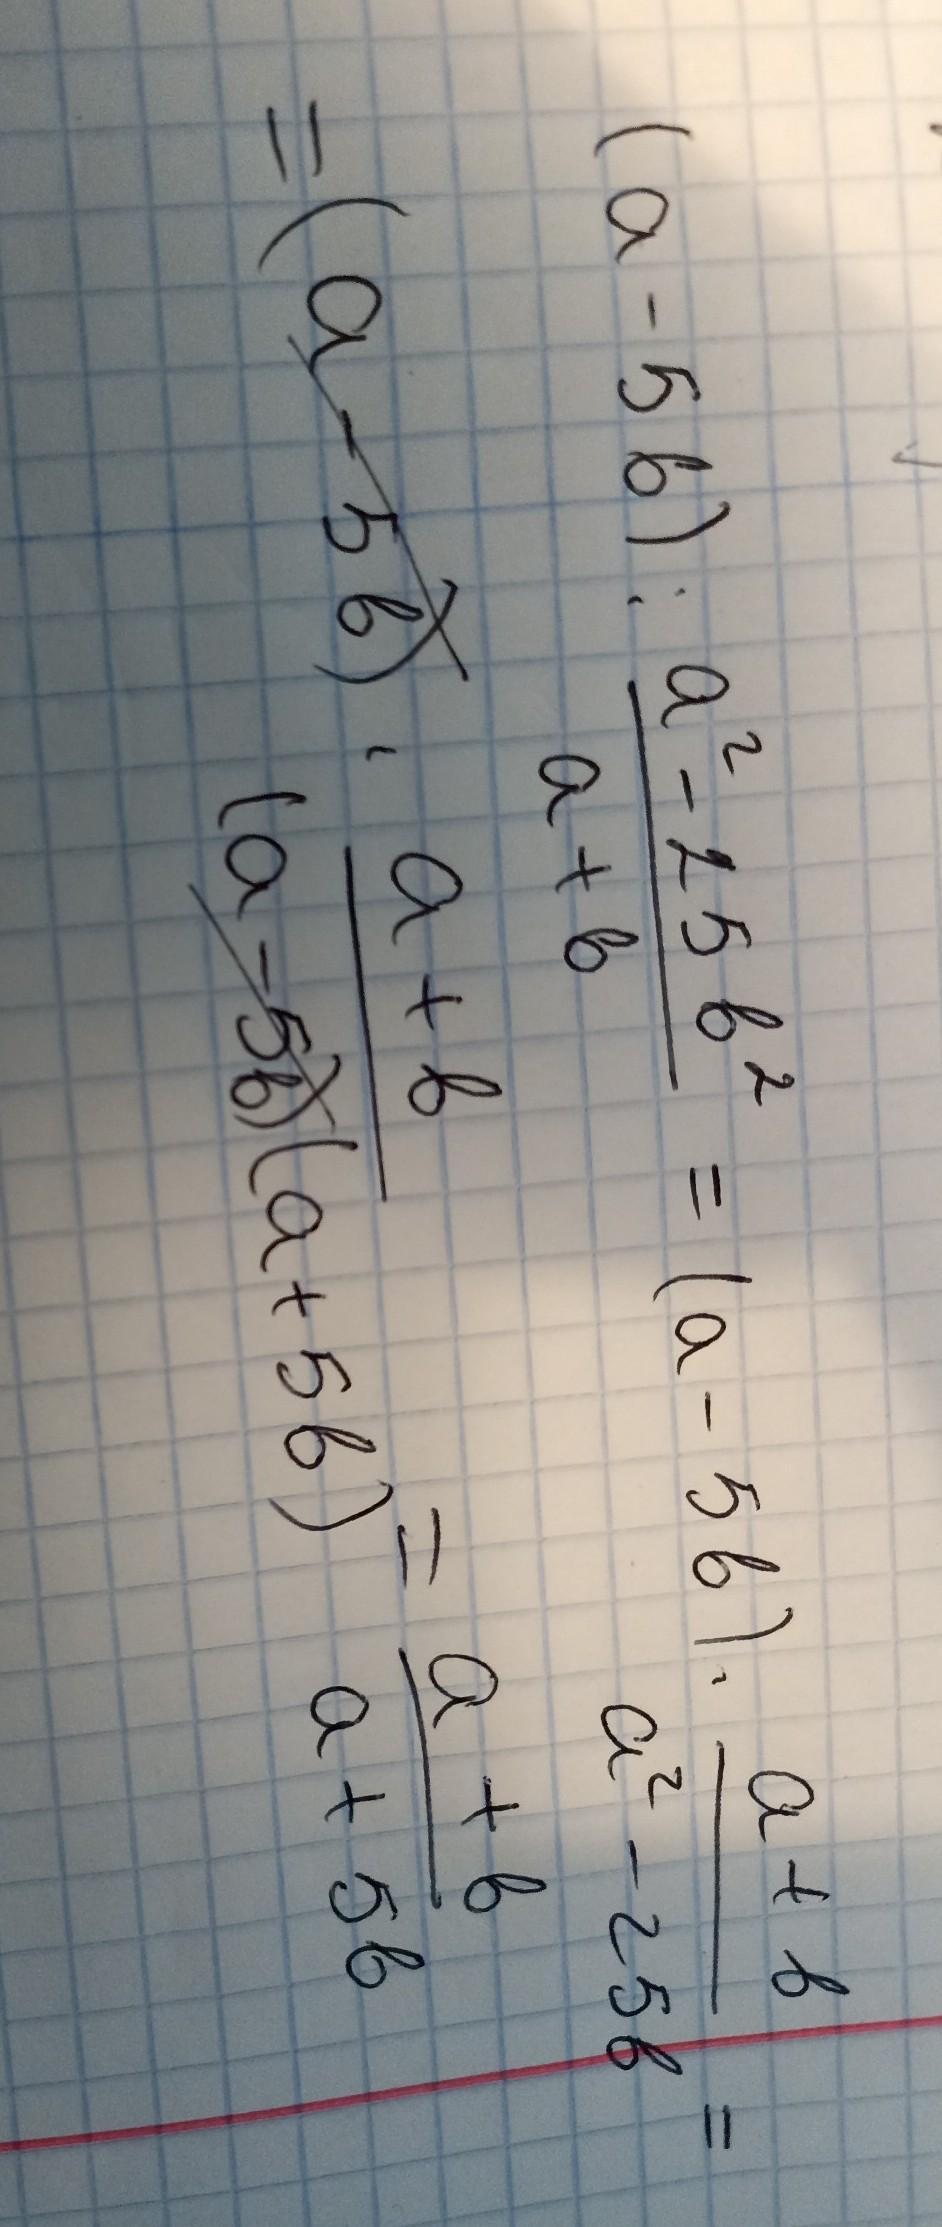 (a - 5b) : \frac{a² - 25b²}{a + b} = (a - 5b) · \frac{a + b}{a² - 25b} =
= (a - 5b) · \frac{a + b}{(a - 5b)(a + 5b)} = \frac{a + b}{a + 5b}